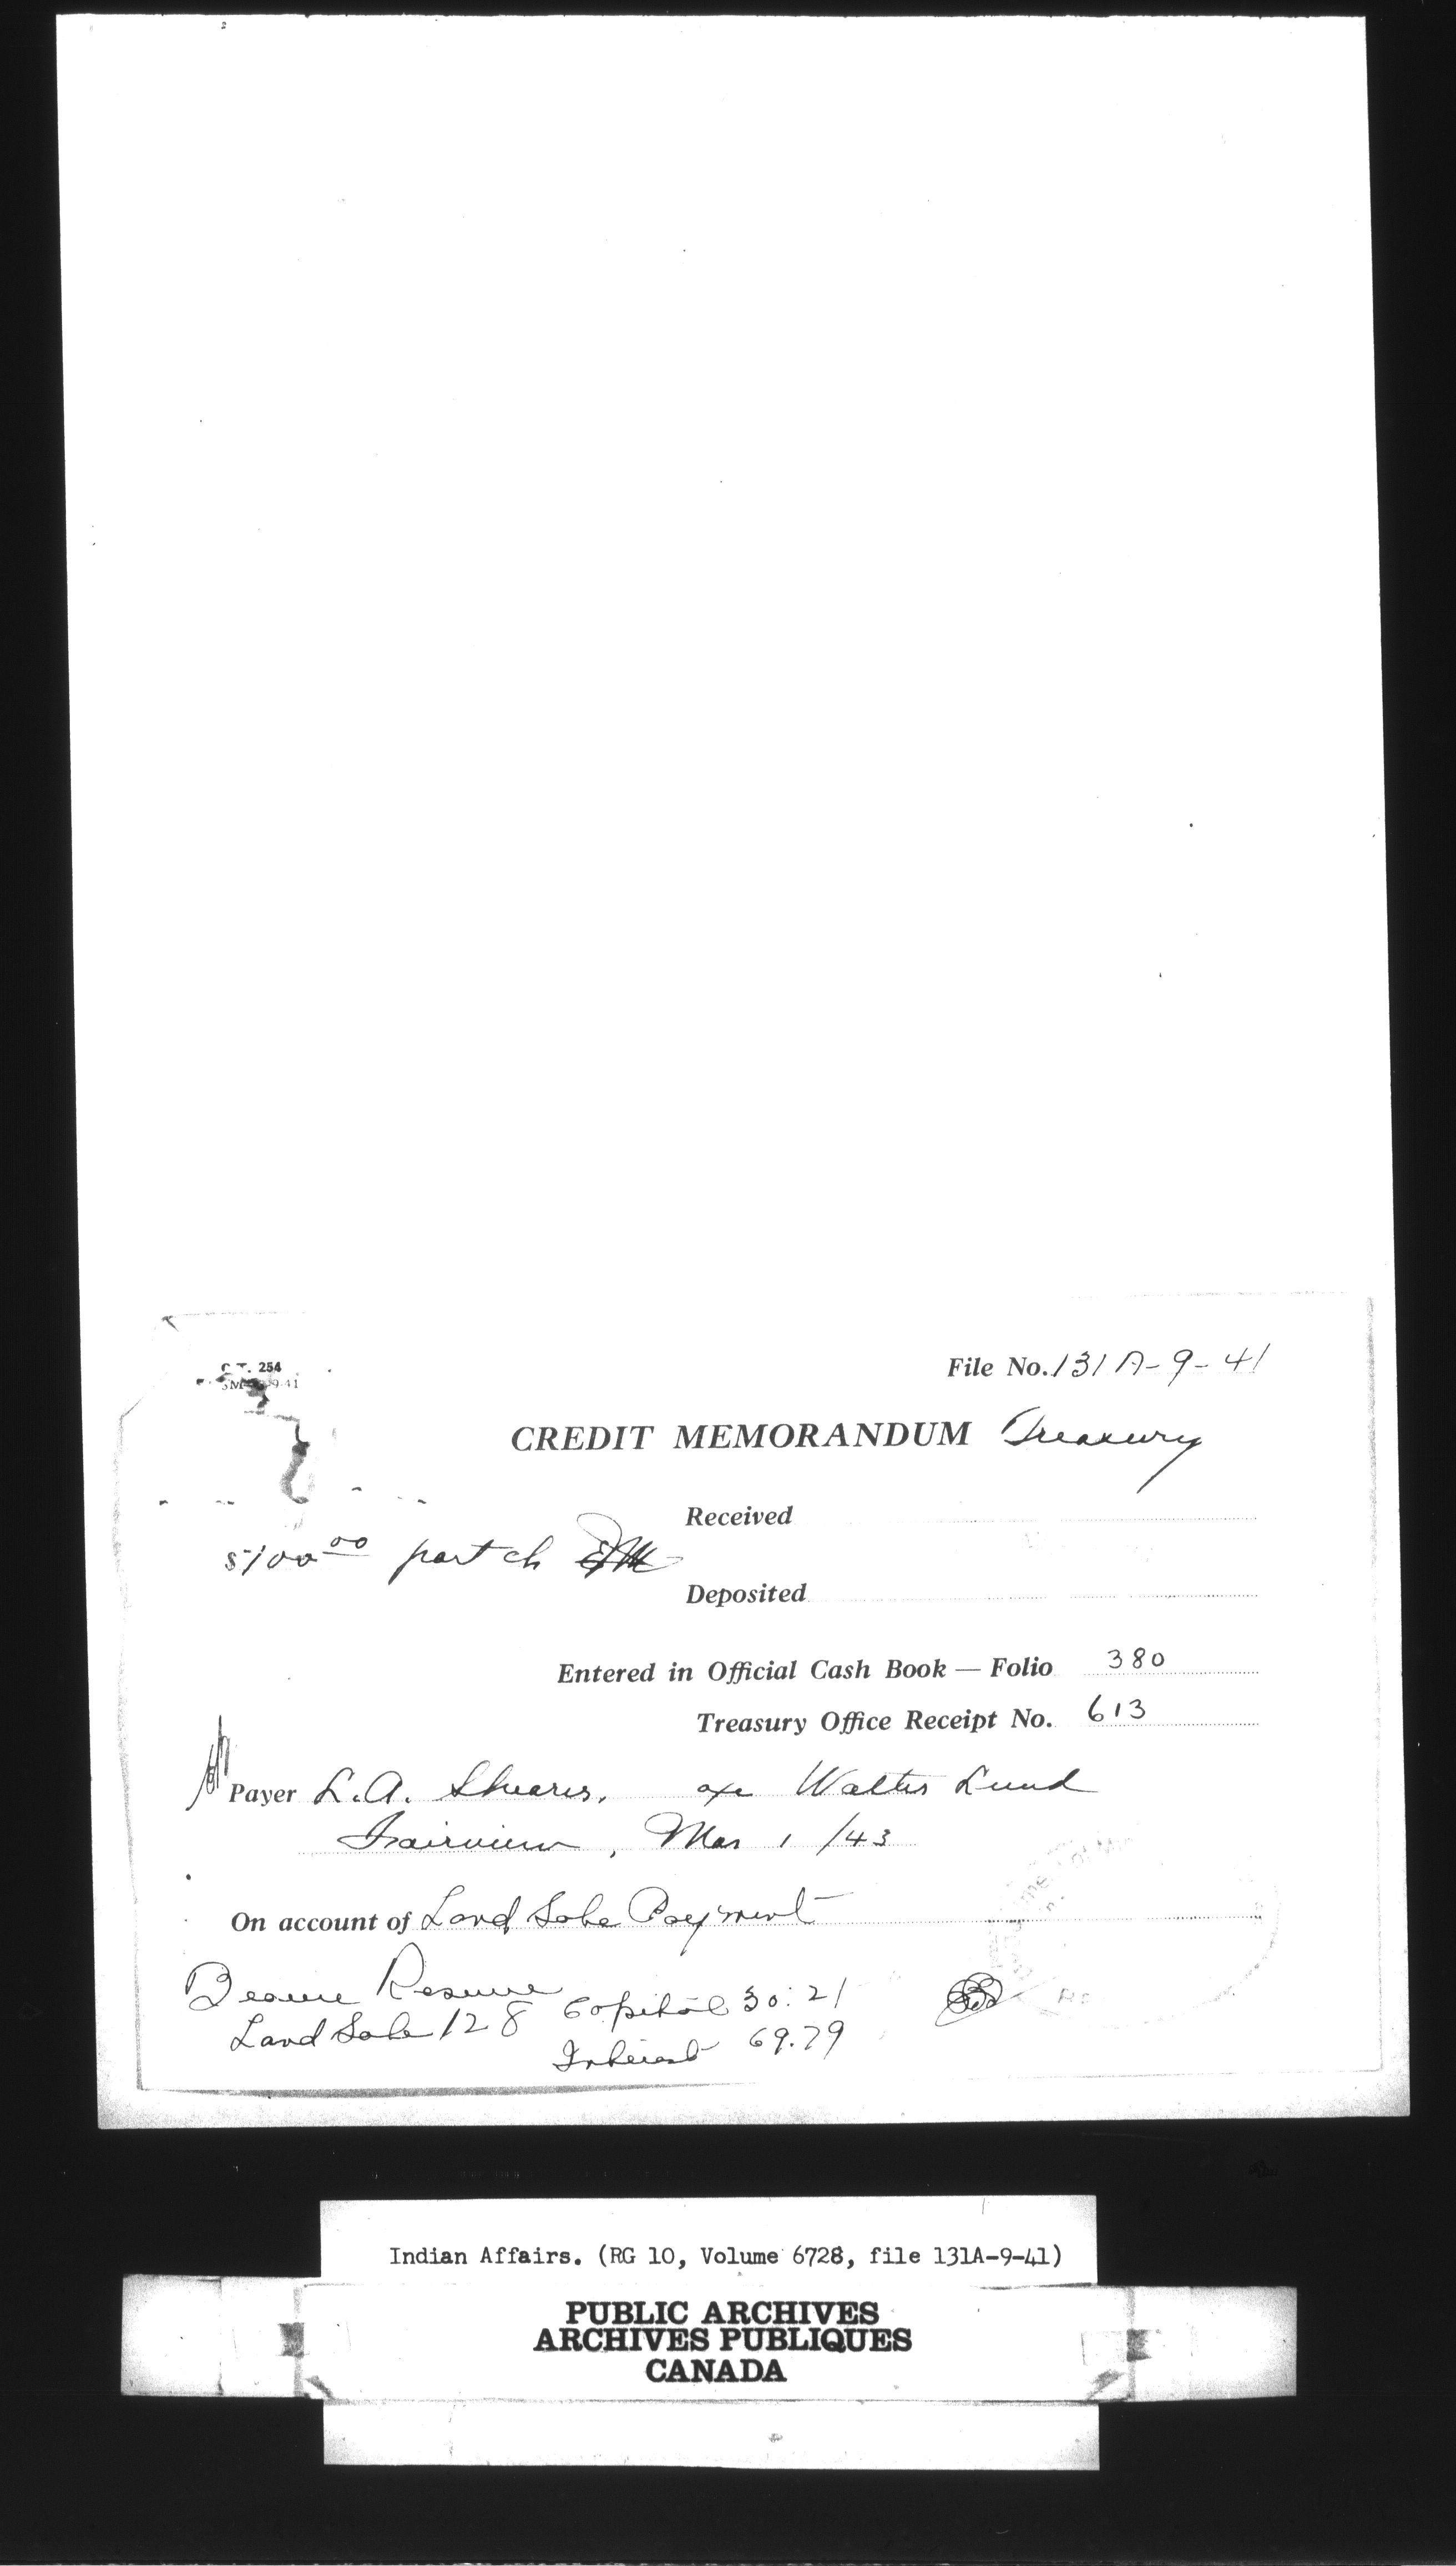 C.T. 254
File No. 131A-9-41
CREDIT MEMORANDUM Treasury
Received
$100.00 part ch
Deposited
Entered in Official Cash Book — Folio 380
Treasury Office Receipt No. 613
Payer L.A. Shearer, a/c Walter Lund
Fairview, Mar 1/43
On account of Land Sale Payment
Beaver Reserve
Land Sale 128 Capital 30.21
Interest 69.79
Indian Affairs. (RG 10, Volume 6728, file 131A-9-41)
PUBLIC ARCHIVES
ARCHIVES PUBLIQUES
CANADA